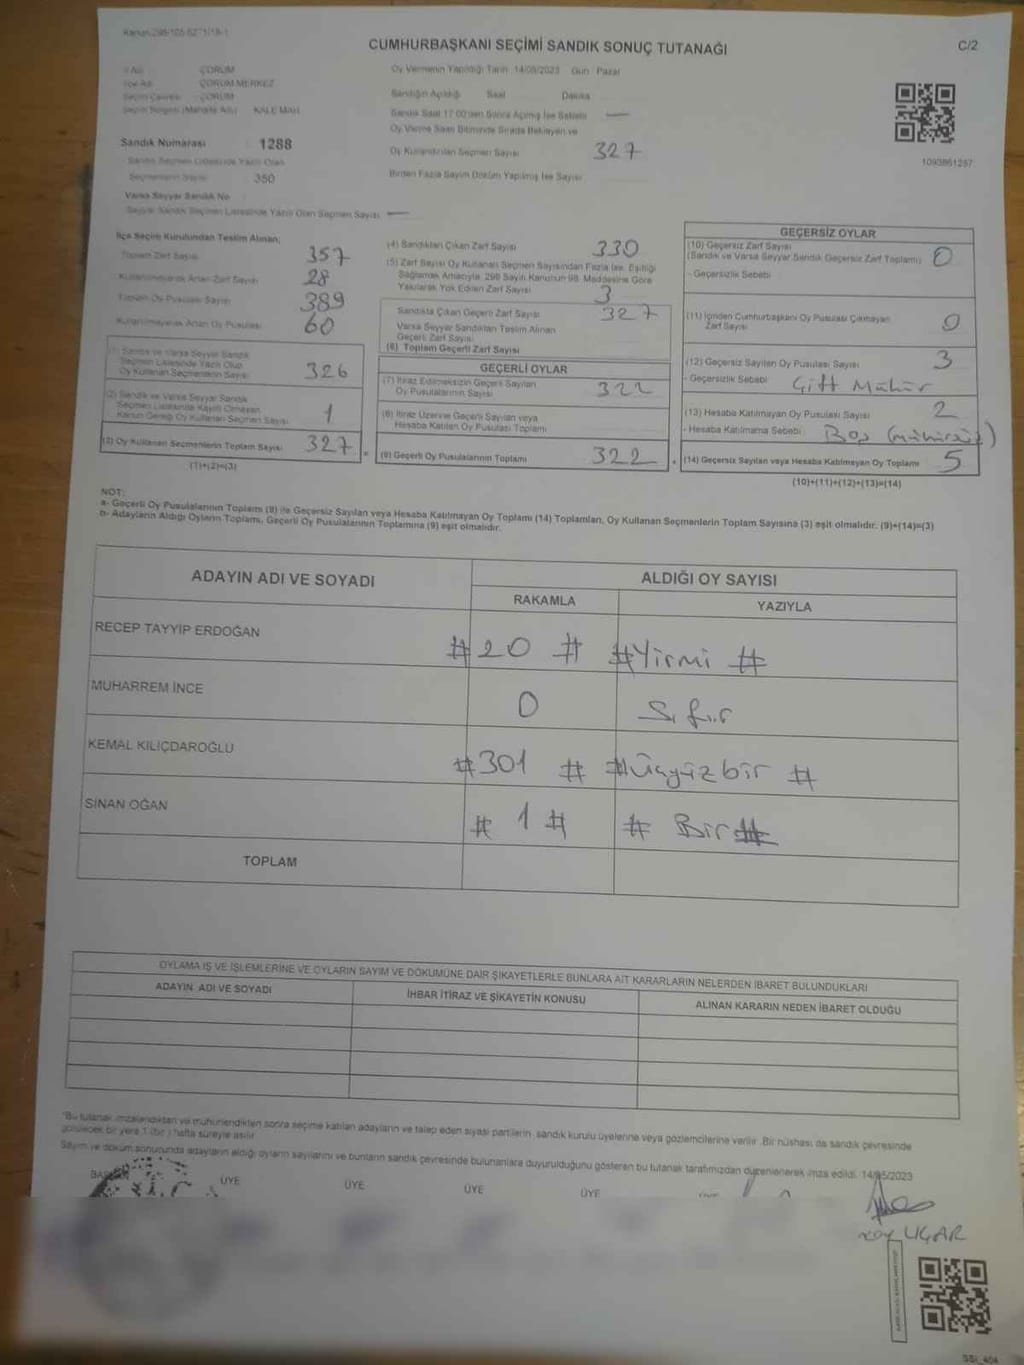 Kanun:298/105 6271/19-1
CUMHURBAŞKANI SEÇİMİ SANDIK SONUÇ TUTANAĞI
C/2
İl Adı : ÇORUM
İlçe Adı : ÇORUM MERKEZ
Seçim Çevresi : ÇORUM
Seçim Bölgesi (Mahalle Adı) : KALE MAH.
Sandık Numarası : 1288
Sandık Seçmen Listesinde Yazılı Olan
Seçmenlerin Sayısı : 350
Varsa Seyyar Sandık No :
Seyyar Sandık Seçmen Listesinde Yazılı Olan Seçmen Sayısı —
Oy Vermenin Yapıldığı Tarih : 14/05/2023 Gün : Pazar
Sandığın Açıldığı Saat Dakika
Sandık Saat 17:00'den Sonra Açılmış İse Sebebi —
Oy Verme Saati Bitiminde Sırada Bekleyen ve
Oy Kullandırılan Seçmen Sayısı 327
Birden Fazla Sayım Döküm Yapılmış İse Sayısı
1093861257
İlçe Seçim Kurulundan Teslim Alınan;
Toplam Zarf Sayısı 357
Kullanılmayarak Artan Zarf Sayısı 28
Toplam Oy Pusulası Sayısı 389
Kullanılmayarak Artan Oy Pusulası 60
(1) Sandık ve Varsa Seyyar Sandık
Seçmen Listesinde Yazılı Olup
Oy Kullanan Seçmenlerin Sayısı 326
(2) Sandık ve Varsa Seyyar Sandık
Seçmen Listesinde Kayıtlı Olmayan
Kanun Gereği Oy Kullanan Seçmen Sayısı 1
(3) Oy Kullanan Seçmenlerin Toplam Sayısı 327 =
(1)+(2)=(3)
(4) Sandıktan Çıkan Zarf Sayısı 330
(5) Zarf Sayısı Oy Kullanan Seçmen Sayısından Fazla İse, Eşitliği
Sağlamak Amacıyla, 298 Sayılı Kanunun 98. Maddesine Göre
Yakılarak Yok Edilen Zarf Sayısı 3
Sandıkta Çıkan Geçerli Zarf Sayısı 327
Varsa Seyyar Sandıktan Teslim Alınan
Geçerli Zarf Sayısı
(6) Toplam Geçerli Zarf Sayısı
GEÇERLİ OYLAR
(7) İtiraz Edilmeksizin Geçerli Sayılan
Oy Pusulalarının Sayısı 322
(8) İtiraz Üzerine Geçerli Sayılan veya
Hesaba Katılan Oy Pusulası Toplamı
(9) Geçerli Oy Pusulalarının Toplamı 322 +
GEÇERSİZ OYLAR
(10) Geçersiz Zarf Sayısı
(Sandık ve Varsa Seyyar Sandık Geçersiz Zarf Toplamı) 0
- Geçersizlik Sebebi
(11) İçinden Cumhurbaşkanı Oy Pusulası Çıkmayan
Zarf Sayısı 0
(12) Geçersiz Sayılan Oy Pusulası Sayısı 3
- Geçersizlik Sebebi Çift Mühür
(13) Hesaba Katılmayan Oy Pusulası Sayısı 2
- Hesaba Katılmama Sebebi Boş (mühürsüz)
(14) Geçersiz Sayılan veya Hesaba Katılmayan Oy Toplamı 5
(10)+(11)+(12)+(13)=(14)
NOT:
a- Geçerli Oy Pusulalarının Toplamı (9) ile Geçersiz Sayılan veya Hesaba Katılmayan Oy Toplamı (14) Toplamları, Oy Kullanan Seçmenlerin Toplam Sayısına (3) eşit olmalıdır. (9)+(14)=(3)
b- Adayların Aldığı Oyların Toplamı, Geçerli Oy Pusulalarının Toplamına (9) eşit olmalıdır.
ADAYIN ADI VE SOYADI
ALDIĞI OY SAYISI
RAKAMLA YAZIYLA
RECEP TAYYİP ERDOĞAN # 20 # # Yirmi #
MUHARREM İNCE 0 Sıfır
KEMAL KILIÇDAROĞLU # 301 # # Üçyüzbir #
SİNAN OĞAN # 1 # # Bir #
TOPLAM
OYLAMA İŞ VE İŞLEMLERİNE VE OYLARIN SAYIM VE DÖKÜMÜNE DAİR ŞİKAYETLERLE BUNLARA AİT KARARLARIN NELERDEN İBARET BULUNDUKLARI
ADAYIN ADI VE SOYADI İHBAR İTİRAZ VE ŞİKAYETİN KONUSU ALINAN KARARIN NEDEN İBARET OLDUĞU
*Bu tutanak imzalandıktan ve mühürlendikten sonra seçime katılan adayların ve talep eden siyasi partilerin, sandık kurulu üyelerine veya gözlemcilerine verilir. Bir nüshası da sandık çevresinde
görülecek bir yere 1 (bir) hafta süreyle asılır.
Sayım ve döküm sonucunda adayların aldığı oyların sayılarını ve bunların sandık çevresinde bulunanlara duyurulduğunu gösteren bu tutanak tarafımızdan düzenlenerek imza edildi. 14/05/2023
BAŞKAN ÜYE ÜYE ÜYE ÜYE
UÇAR